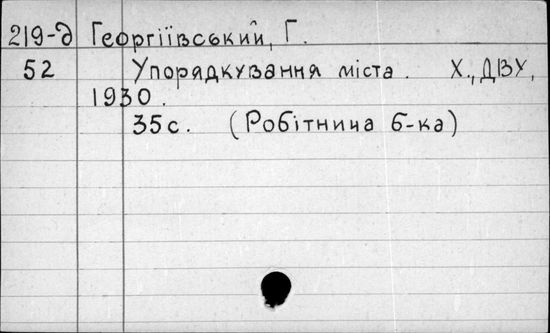 219-д Георгіївський, Г.
52 Упорядкування міста. Х., ДВУ,
1930.
35с. (Робітнича б-ка)